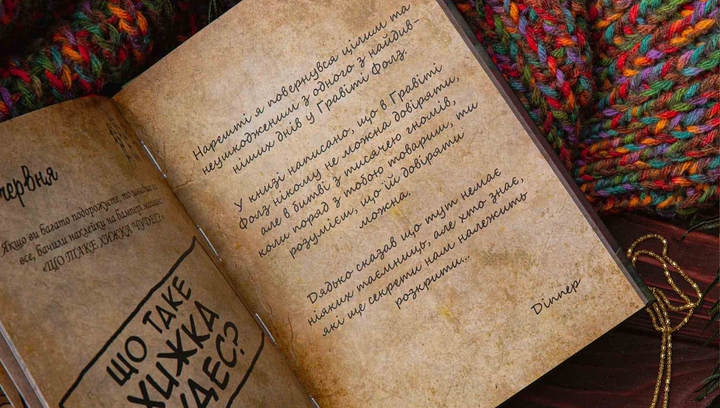 червня
Якщо ви багато подорожуєте, то
все, бачили наклейку на бампер
«ЩО ТАКЕ ХИЖКА ЧУДЕС?»
ЩО ТАКЕ
ХИЖКА
ДЕС?
Нарешті я повернувся цілим та
неушкодженим з одного з найдив-
ніших днів у Ґравіті Фолз.
У книзі написано, що в Ґравіті
Фолз нікому не можна довіряти,
але в битві з тисячею гномів,
коли поряд з тобою товариш, ти
розумієш, що їй довіряти
можна.
Дядько сказав що тут немає
ніяких таємниць, але хто знає,
які ще секрети нам належить
розкрити...
Діппер